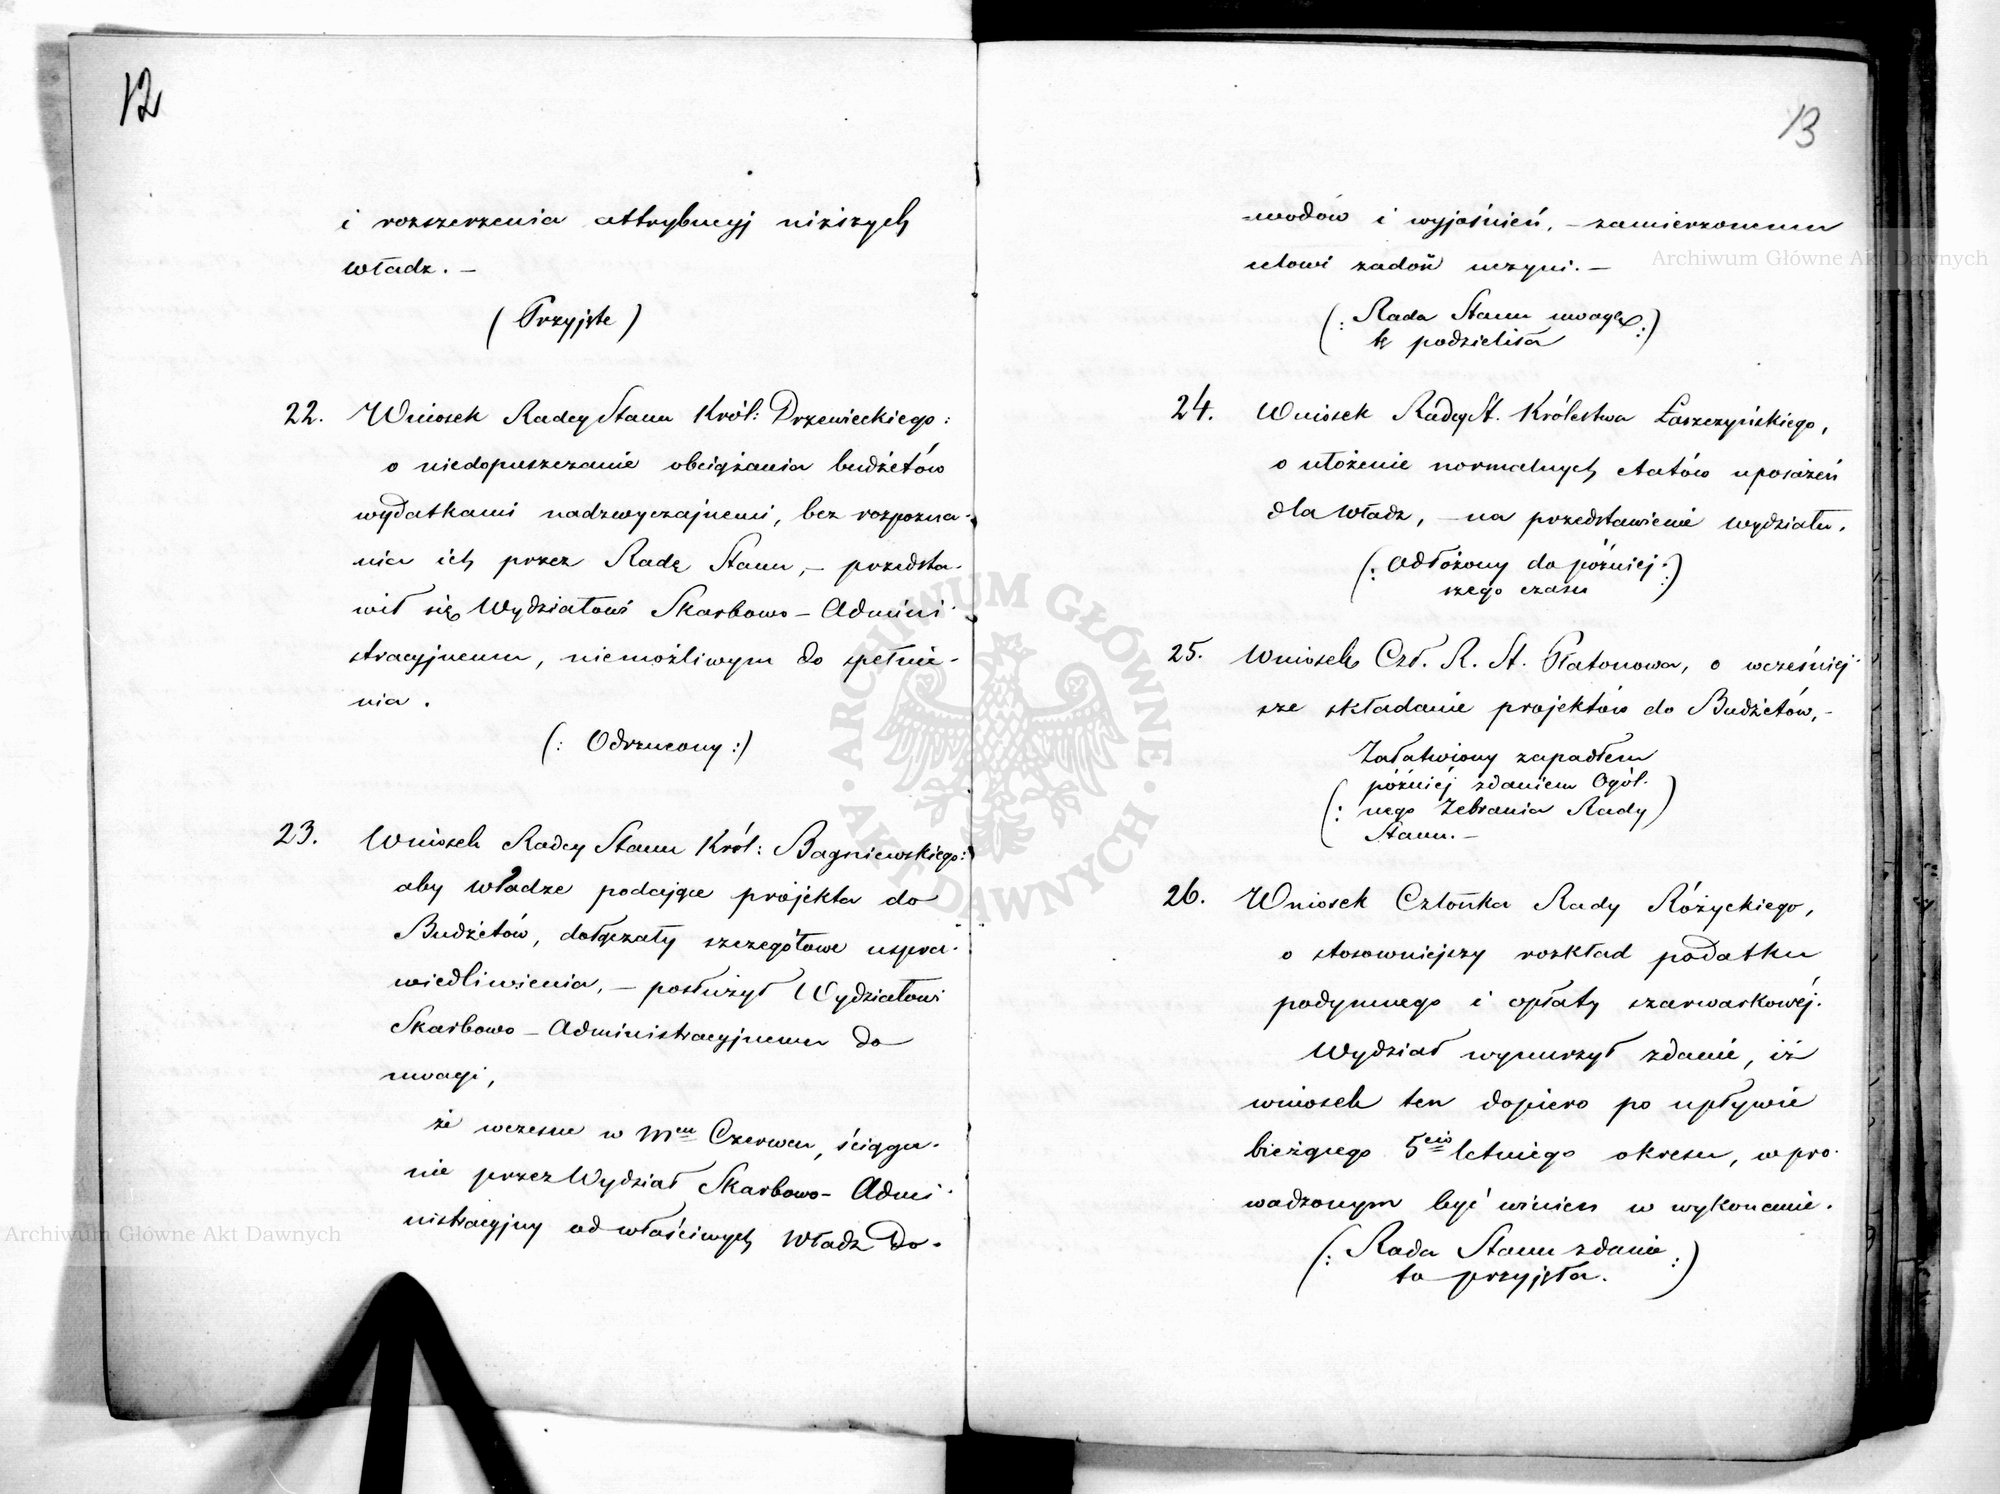 12
i rozszerzenia attrybucyj niższych
władz. –
( Przyjęte )
22. Wniosek Radcy Stanu Król: Drzewieckiego:
o niedopuszczanie obciążania budżetów
wydatkami nadzwyczajnemi, bez rozpozna-
nia ich przez Radę Stanu, – przedsta-
wił się Wydziałowi Skarbowo – Admini-
stracyjnemu, niemożliwym do spełnie-
nia.
(: Odrzucony :)
23. Wniosek Radcy Stanu Król: Bagniewskiego:
aby Władze podające projekta do
Budżetów, dołączały szczegółowe uspra-
wiedliwienia, – posłużył Wydziałowi
Skarbowo – Administracyjnemu do
uwagi,
że wczesne w Mcu Czerwcu, ściągnie-
nie przez Wydział Skarbowo – Admi-
nistracyjny od właściwych Władz Do-
13
-wodów i wyjaśnień, – zamierzonemu
celowi zadoń uczyni. –
(: Rada Stanu uwagę :)
tę podzieliła
24. Wniosek Radcy St. Królestwa Łaszczyńskiego,
o ułożenie normalnych etatów uposażeń
dla Władz, – na przedstawienie wydziału,
(: Odłożony do później- :)
szego czasu
25. Wniosek Czł. R. St. Płatonowa, o wcześniej-
sze składanie projektów do Budżetów, –
Załatwiony zapadłem
później zdaniem Ogól-
(: nego Zebrania Rady )
Stanu. –
26. Wniosek Członka Rady Różyckiego,
o stosowniejszy rozkład podatku
podymnego i opłaty szarwarkowéj.
Wydział wynurzył zdanie, iż
wniosek ten dopiero po upływie
bieżącego 5cio letniego okresu, wpro-
wadzonym być winien w wykonanie.
(: Rada Stanu zdanie :)
to przyjęła.
Archiwum Główne Akt Dawnych
Archiwum Główne Akt Dawnych
· ARCHIWUM GŁÓWNE · AKT DAWNYCH